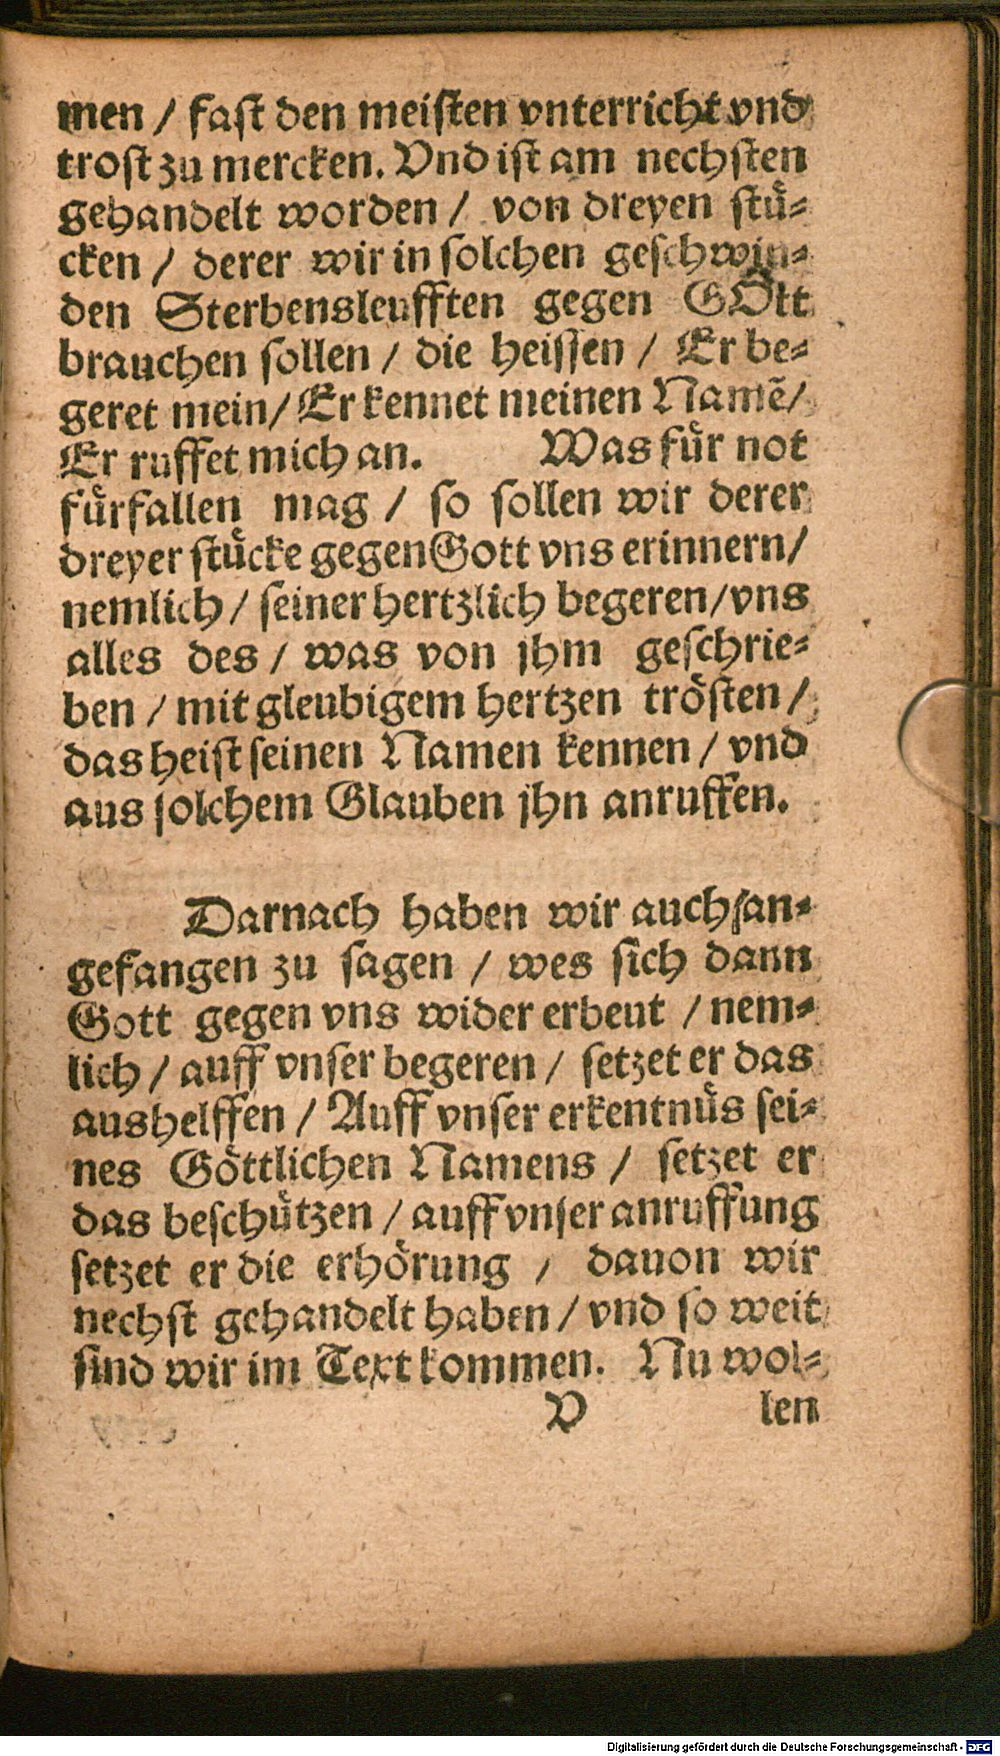 men / fast den meisten vnterricht vnd
trost zu mercken. Vnd ist am nechsten
gehandelt worden / von dreyen stuͤ-
cken / derer wir in solchen geschwin-
den Sterbensleufften gegen GOtt
brauchen sollen / die heissen / Er be-
geret mein / Er kennet meinen Namẽ /
Er ruffet mich an. Was fuͤr not
fuͤrfallen mag / so sollen wir derer
dreyer stuͤcke gegen Gott vns erinnern /
nemlich / seiner hertzlich begeren / vns
alles des / was von jhm geschrie-
ben / mit gleubigem hertzen troͤsten /
das heist seinen Namen kennen / vnd
aus solchem Glauben jhn anruffen.
Darnach haben wir auch an-
gefangen zu sagen / wes sich dann
Gott gegen vns wider erbeut / nem-
lich / auff vnser begeren / setzet er das
aushelffen / Auff vnser erkentnuͤs sei-
nes Goͤttlichen Namens / setzet er
das beschuͤtzen / auff vnser anruffung
setzet er die erhoͤrung / dauon wir
nechst gehandelt haben / vnd so weit
sind wir im Text kommen. Nu wol-
V len
Digitalisierung gefördert durch die Deutsche Forschungsgemeinschaft - DFG